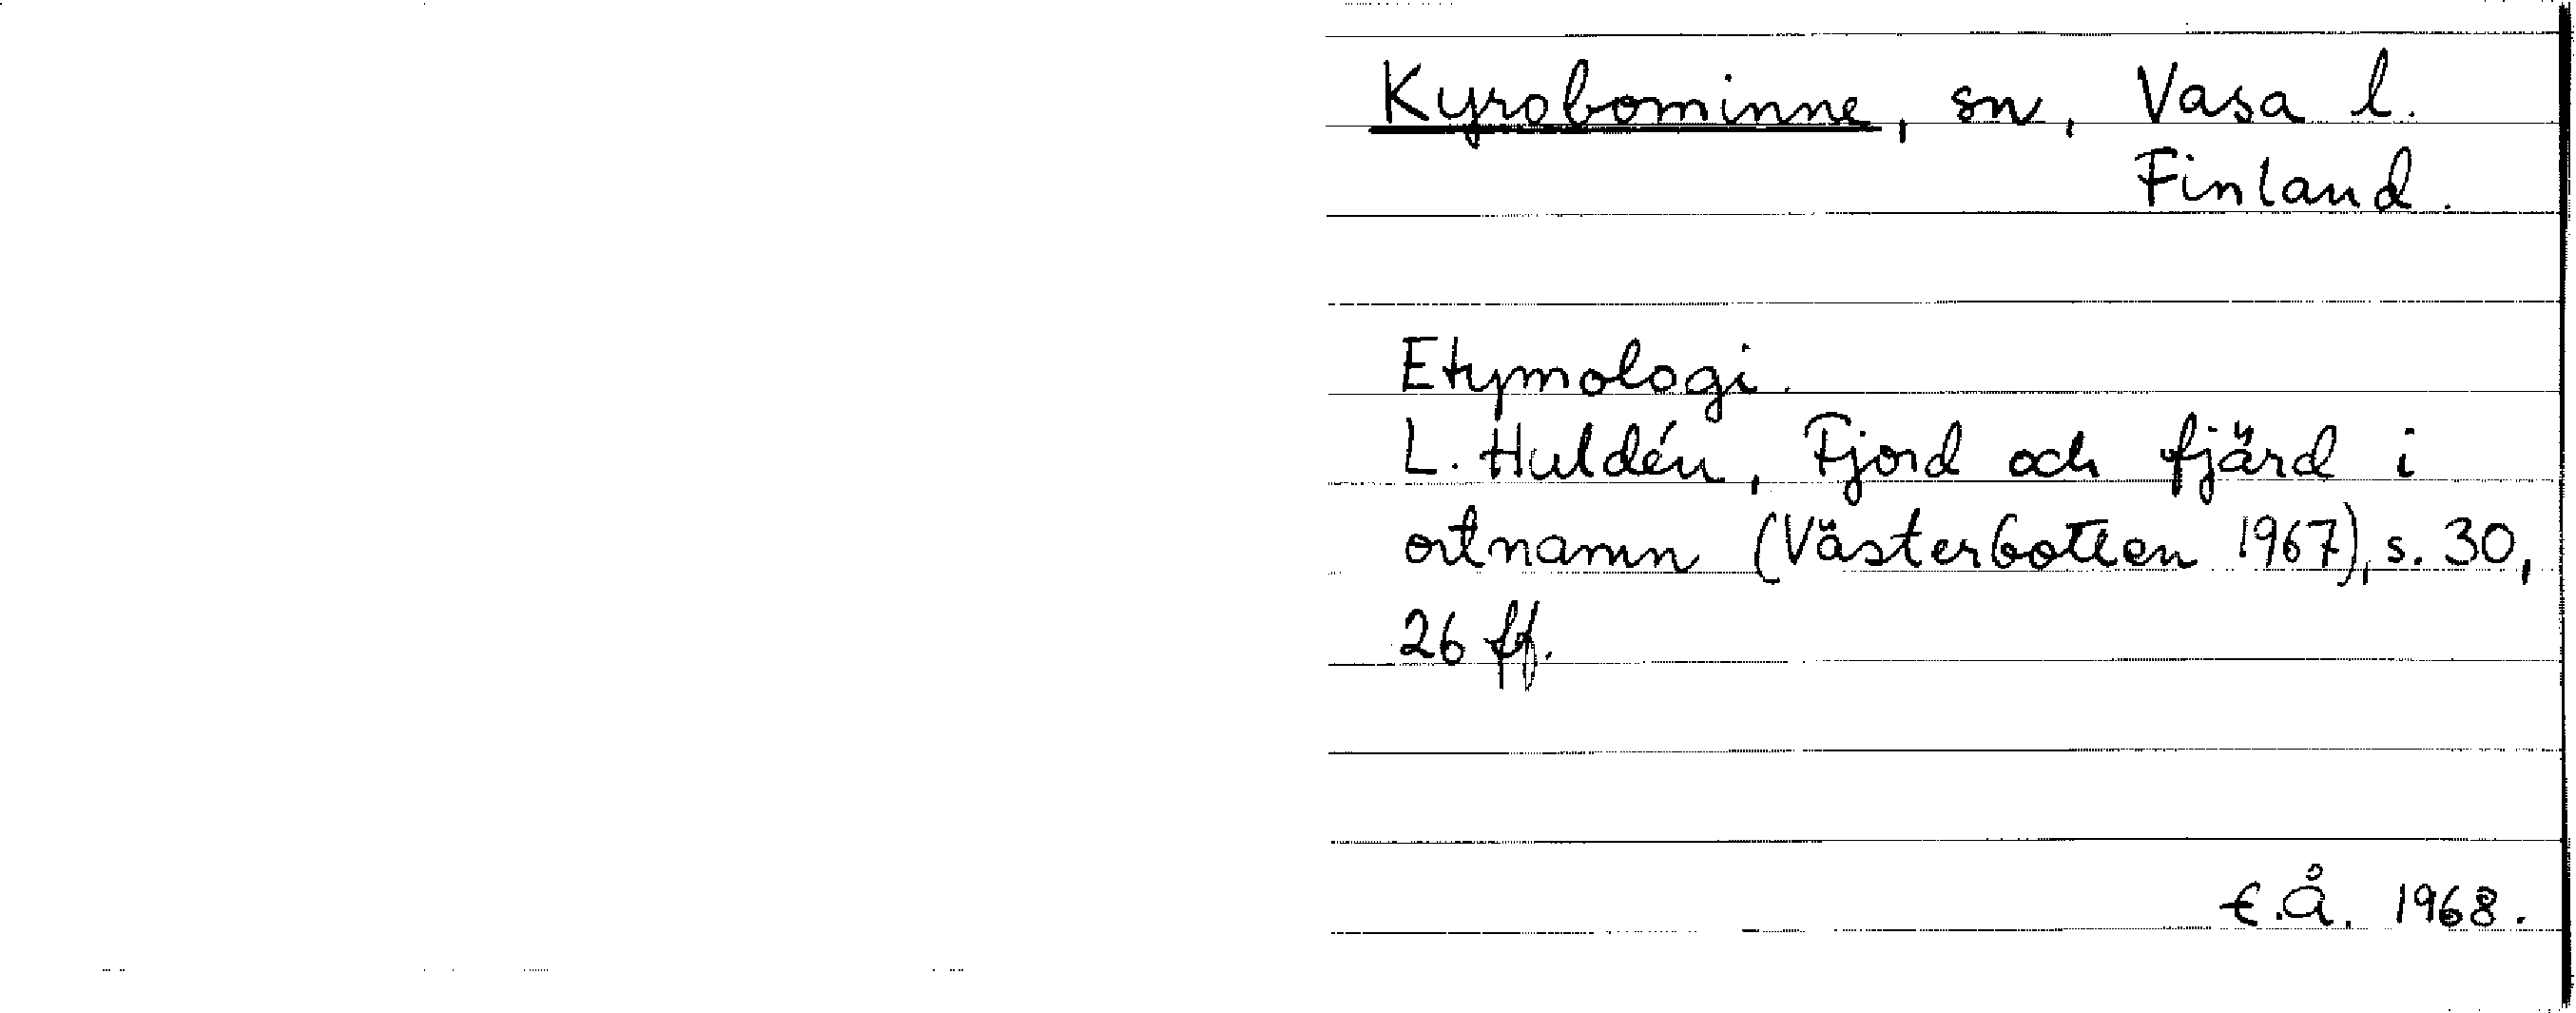 Kyrobominne, sn, Vasa l.
Finland.
Etymologi.
L. Huldén, Fjord och fjärd i
ortnamn (Västerbotten 1967), s. 30,
26 ff.
E.Å. 1968.